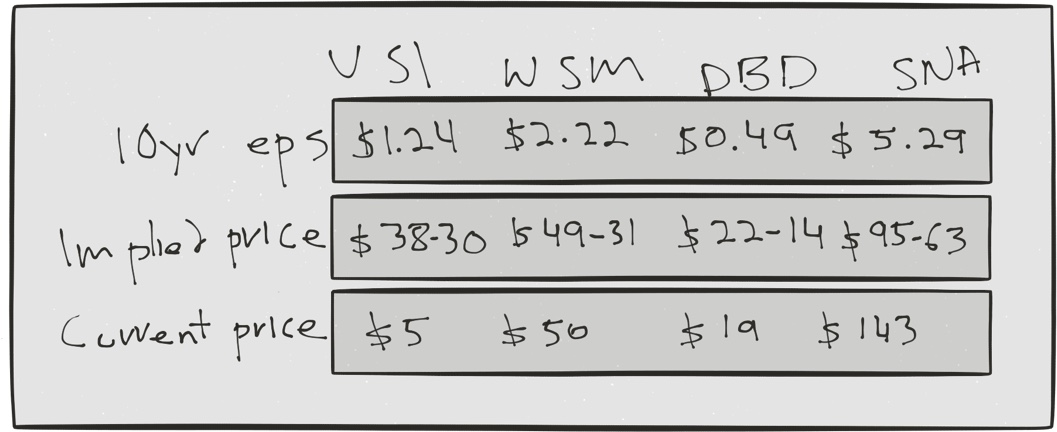 VSI WSM DBD SNA
10yr eps $1.24 $2.22 $0.49 $5.29
Implied price $38-30 $49-31 $22-14 $95-63
Current price $5 $50 $19 $143